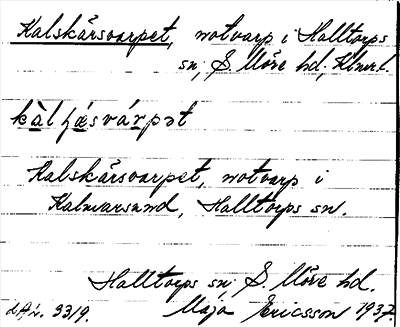 Kalskärsvarpet, notvarp i Halltorps
sn, S. Möre hd, Klmrl.
kàlʃæsvárpət
Kalskärsvarpet, notvarp i
Kalmarsund, Halltorps sn.
Halltorps sn S. Möre hd.
Maja Ericsson 1937.